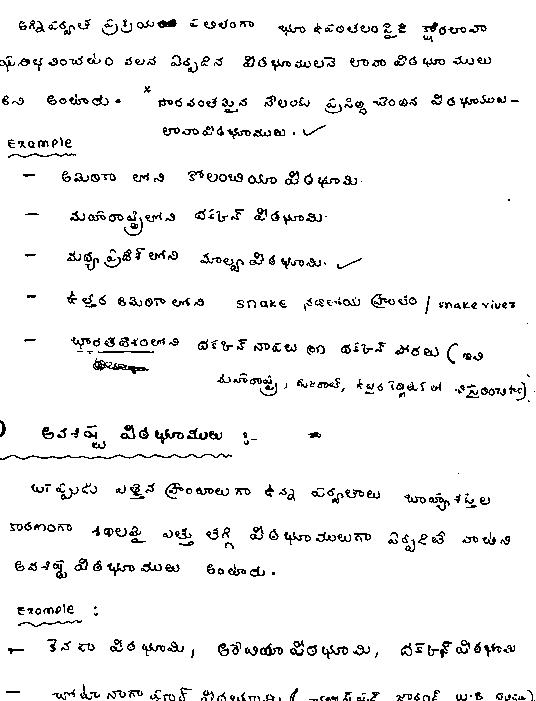 అగ్నిపర్వత ప్రక్రియ ఫలితంగా భూ ఉపరితలంపైకి క్షారలావా
ఘనీభవించడం వలన ఏర్పడిన పీఠభూములనే లావా పీఠభూములు
అని అంటారు. * సారవంతమైన నేలలకు ప్రసిద్ధి చెందిన పీఠభూములు -
లావాపీఠభూములు. ✓
Example
- అమెరికా లోని కొలంబియా పీఠభూమి.
- మహారాష్ట్రలోని దక్కన్ పీఠభూమి.
- మధ్యప్రదేశ్ లోని మాల్వా పీఠభూమి. ✓
- ఉత్తర అమెరికా లోని snake నదీలోయ ప్రాంతం / snake river
- భారతదేశంలోని దక్కన్ నాపలు
మహారాష్ట్ర, గుజరాత్,
అవశిష్ట పీఠభూములు :-
ఒకప్పుడు ఎత్తైన ప్రాంతాలుగా ఉన్న పర్వతాలు బాహ్యశక్తుల
కారణంగా శిథిలమై ఎత్తు తగ్గి పీఠభూములుగా ఏర్పడితే వాటిని
అవశిష్ట పీఠభూములు అంటారు.
Example :
- కెనడా పీఠభూమి, అరేబియా పీఠభూమి, దక్కన్ పీఠభూమి
- చోటా నాగపూర్ పీఠభూమి (